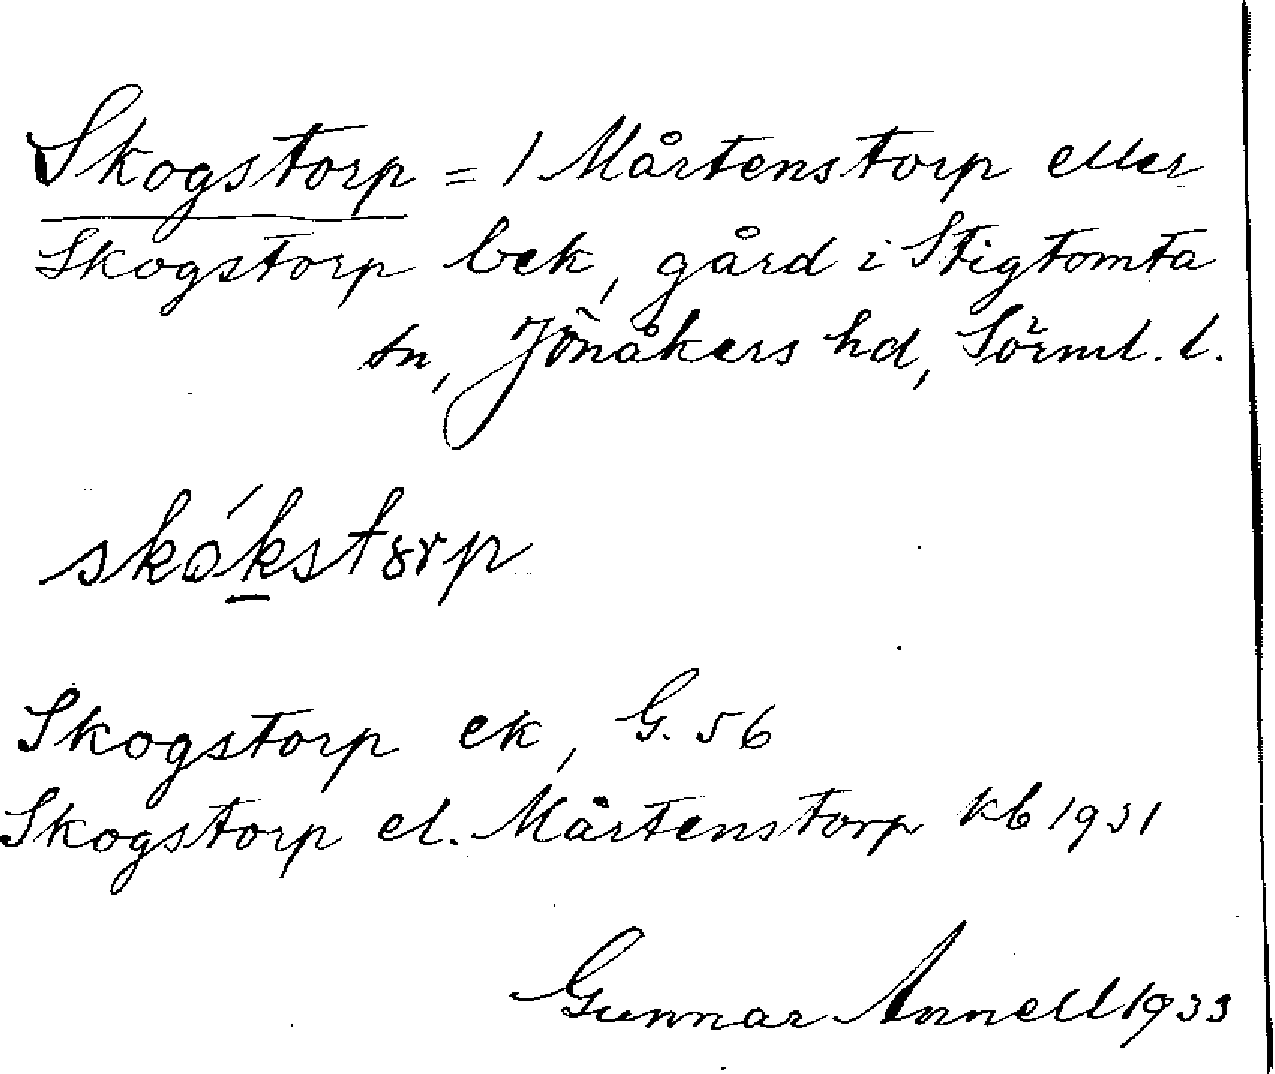 Skogstorp = 1 Mårtenstorp eller
Skogstorp bek, gård i Stigtomta
sn, Jönåkers hd, Sörml. l.
skókstorp
Skogstorp ek, G. 56
Skogstorp el. Mårtenstorp kb 1931
Gunnar Annell 1933